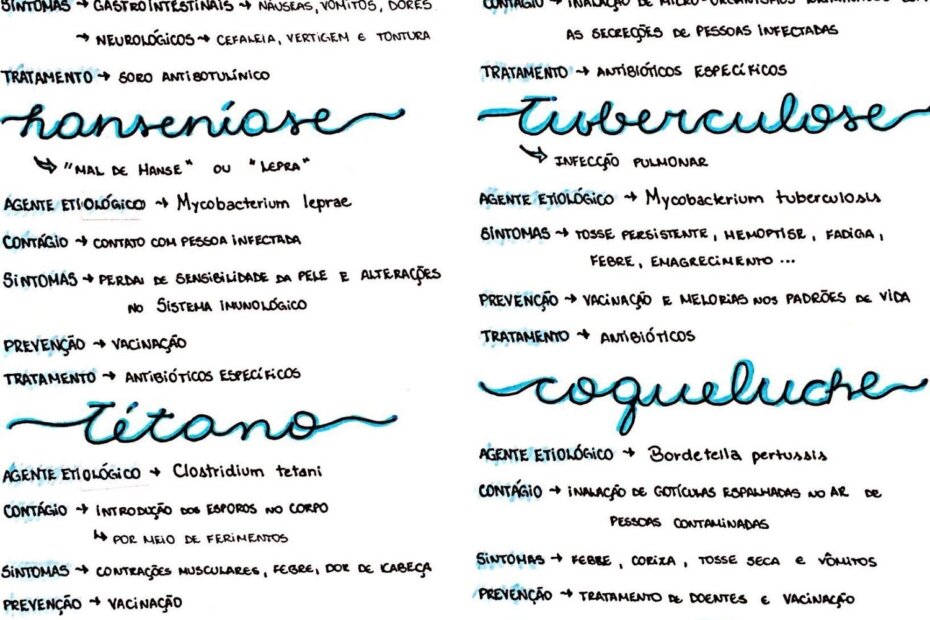 SINTOMAS → GASTROINTESTINAIS → NÁUSEAS, VÔMITOS, DORES
→ NEUROLÓGICOS → CEFALEIA, VERTIGEM E TONTURA
TRATAMENTO → SORO ANTIBOTULÍNICO
hanseníase
↳ "MAL DE HANSE" OU "LEPRA"
AGENTE ETIOLÓGICO → Mycobacterium leprae
CONTÁGIO → CONTATO COM PESSOA INFECTADA
SINTOMAS → PERDA DE SENSIBILIDADE DA PELE E ALTERAÇÕES
NO SISTEMA IMUNOLÓGICO
PREVENÇÃO → VACINAÇÃO
TRATAMENTO → ANTIBIÓTICOS ESPECÍFICOS
tétano
AGENTE ETIOLÓGICO → Clostridium tetani
CONTÁGIO → INTRODUÇÃO DOS ESPOROS NO CORPO
↳ POR MEIO DE FERIMENTOS
SINTOMAS → CONTRAÇÕES MUSCULARES, FEBRE, DOR DE CABEÇA
PREVENÇÃO → VACINAÇÃO
CONTÁGIO → INALAÇÃO DE MICRO-ORGANISMOS
AS SECREÇÕES DE PESSOAS INFECTADAS
TRATAMENTO → ANTIBIÓTICOS ESPECÍFICOS
tuberculose
↳ INFECÇÃO PULMONAR
AGENTE ETIOLÓGICO → Mycobacterium tuberculosis
SINTOMAS → TOSSE PERSISTENTE, HEMOPTISE, FADIGA,
FEBRE, EMAGRECIMENTO...
PREVENÇÃO → VACINAÇÃO E MELORIAS NOS PADRÕES DE VIDA
TRATAMENTO → ANTIBIÓTICOS
coqueluche
AGENTE ETIOLÓGICO → Bordetella pertussis
CONTÁGIO → INALAÇÃO DE GOTÍCULAS ESPALHADAS NO AR DE
PESSOAS CONTAMINADAS
SINTOMAS → FEBRE, CORIZA, TOSSE SECA E VÔMITOS
PREVENÇÃO → TRATAMENTO DE DOENTES E VACINAÇÃO